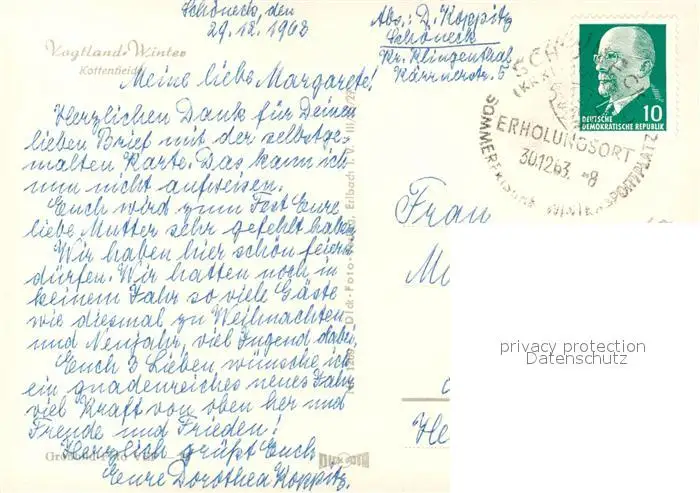 Schöneck, den
29.12.1963
Abs.: D. Koppitz
Schöneck
Kr. Klingenthal
Kärrnerstr. 5
Vogtland-Winter
Kottenheide
DEUTSCHE
DEMOKRATISCHE REPUBLIK
10
ERHOLUNGSORT
30.12.63.-8
SOMMERFRISCHE WINTERSPORTPLATZ
Meine liebe Margarete!
Herzlichen Dank für Deinen
lieben Brief mit der selbstge-
malten Karte. Das kann ich
nun nicht aufweisen.
Euch wird zum Fest Eure
liebe Mutter sehr gefehlt haben.
Wir haben hier schön feiern
dürfen. Wir hatten noch in
keinem Jahr so viele Gäste
wie diesmal zu Weihnachten
und Neujahr, viel Jugend dabei.
Euch 3 Lieben wünsche ich
ein gnadenreiches neues Jahr
viel Kraft von oben her und
Freude und Frieden!
Herzlich grüßt Euch
Eure Dorothea Koppitz.
Frau
privacy protection
Datenschutz
Dick-Foto Erlbach i. V.